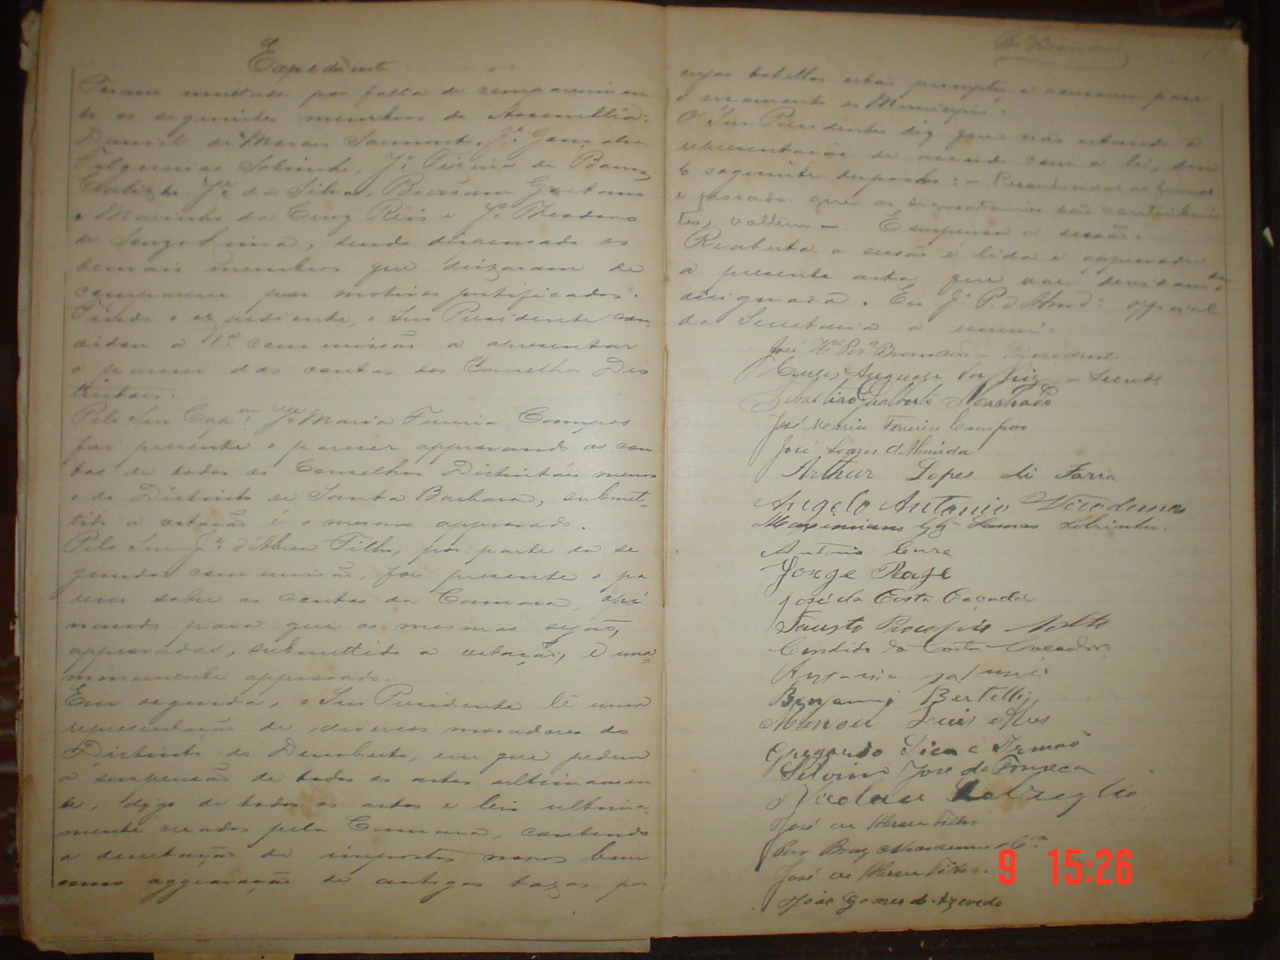 Expediente
Foram multados por falta de comparecimen
to os seguintes membros da Assembléa:
Daniel de Moraes Sarmento, Jé Gonçalves
Filgueiras Sobrinho, Jé Pereira de Barros
Jé da Silva, Caetano
e Marinho da Cruz Reis e Jé Theodoro
de Souza Lima, sendo dispensado os
demais membros que deixaram de
comparecer por motivos justificados.
Findo o expediente, o Snr Presidente con
vidou a 1ª commissão a apresentar
o parecer das contas dos Conselhos Dis
trictaes.
Pelo Snr Capm Jé Maria Ferreira Campos
foi presente o parecer approvando as con
tas de todos os Conselhos Districtáes menos
o do Districto de Santa Barbara, submet-
tido a votação é o mesmo approvado.
Pelo Snr Jé d'Abreu Filho, por parte da se
gunda commissão, foi presente o pa
recer sobre as contas da Camara, opi
nando para que as mesmas sejão,
approvadas, submettido a votação, é una-
nimemente approvado.
Em seguida, o Snr Presidente lê uma
representação de diversos moradores do
Districto do Descoberto, em que pedem
a suspensão de todos os actos ultimamen
te, digo de todos os actos e leis ultima-
mente creados pela Camara, contendo
a decretação de impostos novos bem
como aggravação de antigas taxas, por
cujas tabellas estão promptos a concorrer para
o orçamento do Municipio.
O Snr Presidente diz que não estando a
representação de accordo com a lei, deu
o seguinte despacho: — Reconhecidas as firmas
e provado que os signatarios são contribuin
tes, voltem —. E suspensa a sessão.
Reaberta a sessão é lida e approvada
a presente acta que vae devidamte
assignada. Eu Jé P. d' official
da Secretaria a escrevi.
José Brandão — Presidente
da
Machado
José Maria Ferreira Campos
José Soares d'Almeida
Arthur Lopes de Faria
Angelo Antonio Nicodemos
Lemos Sobrinho.
Antonio
Jorge Rage
José da Costa Caçador
Fausto Procopio
Candido da Costa Caçador
Antonio
Benjamin Bertelli
Manoel Luis Alves
Sica e Irmão
Silvino José da Fonseca
Nicolau
José de Abreu Filho
Por Braz Nicodemos & Cia
José de Abreu Filho.
João Gomes de Azevedo
9 15:26